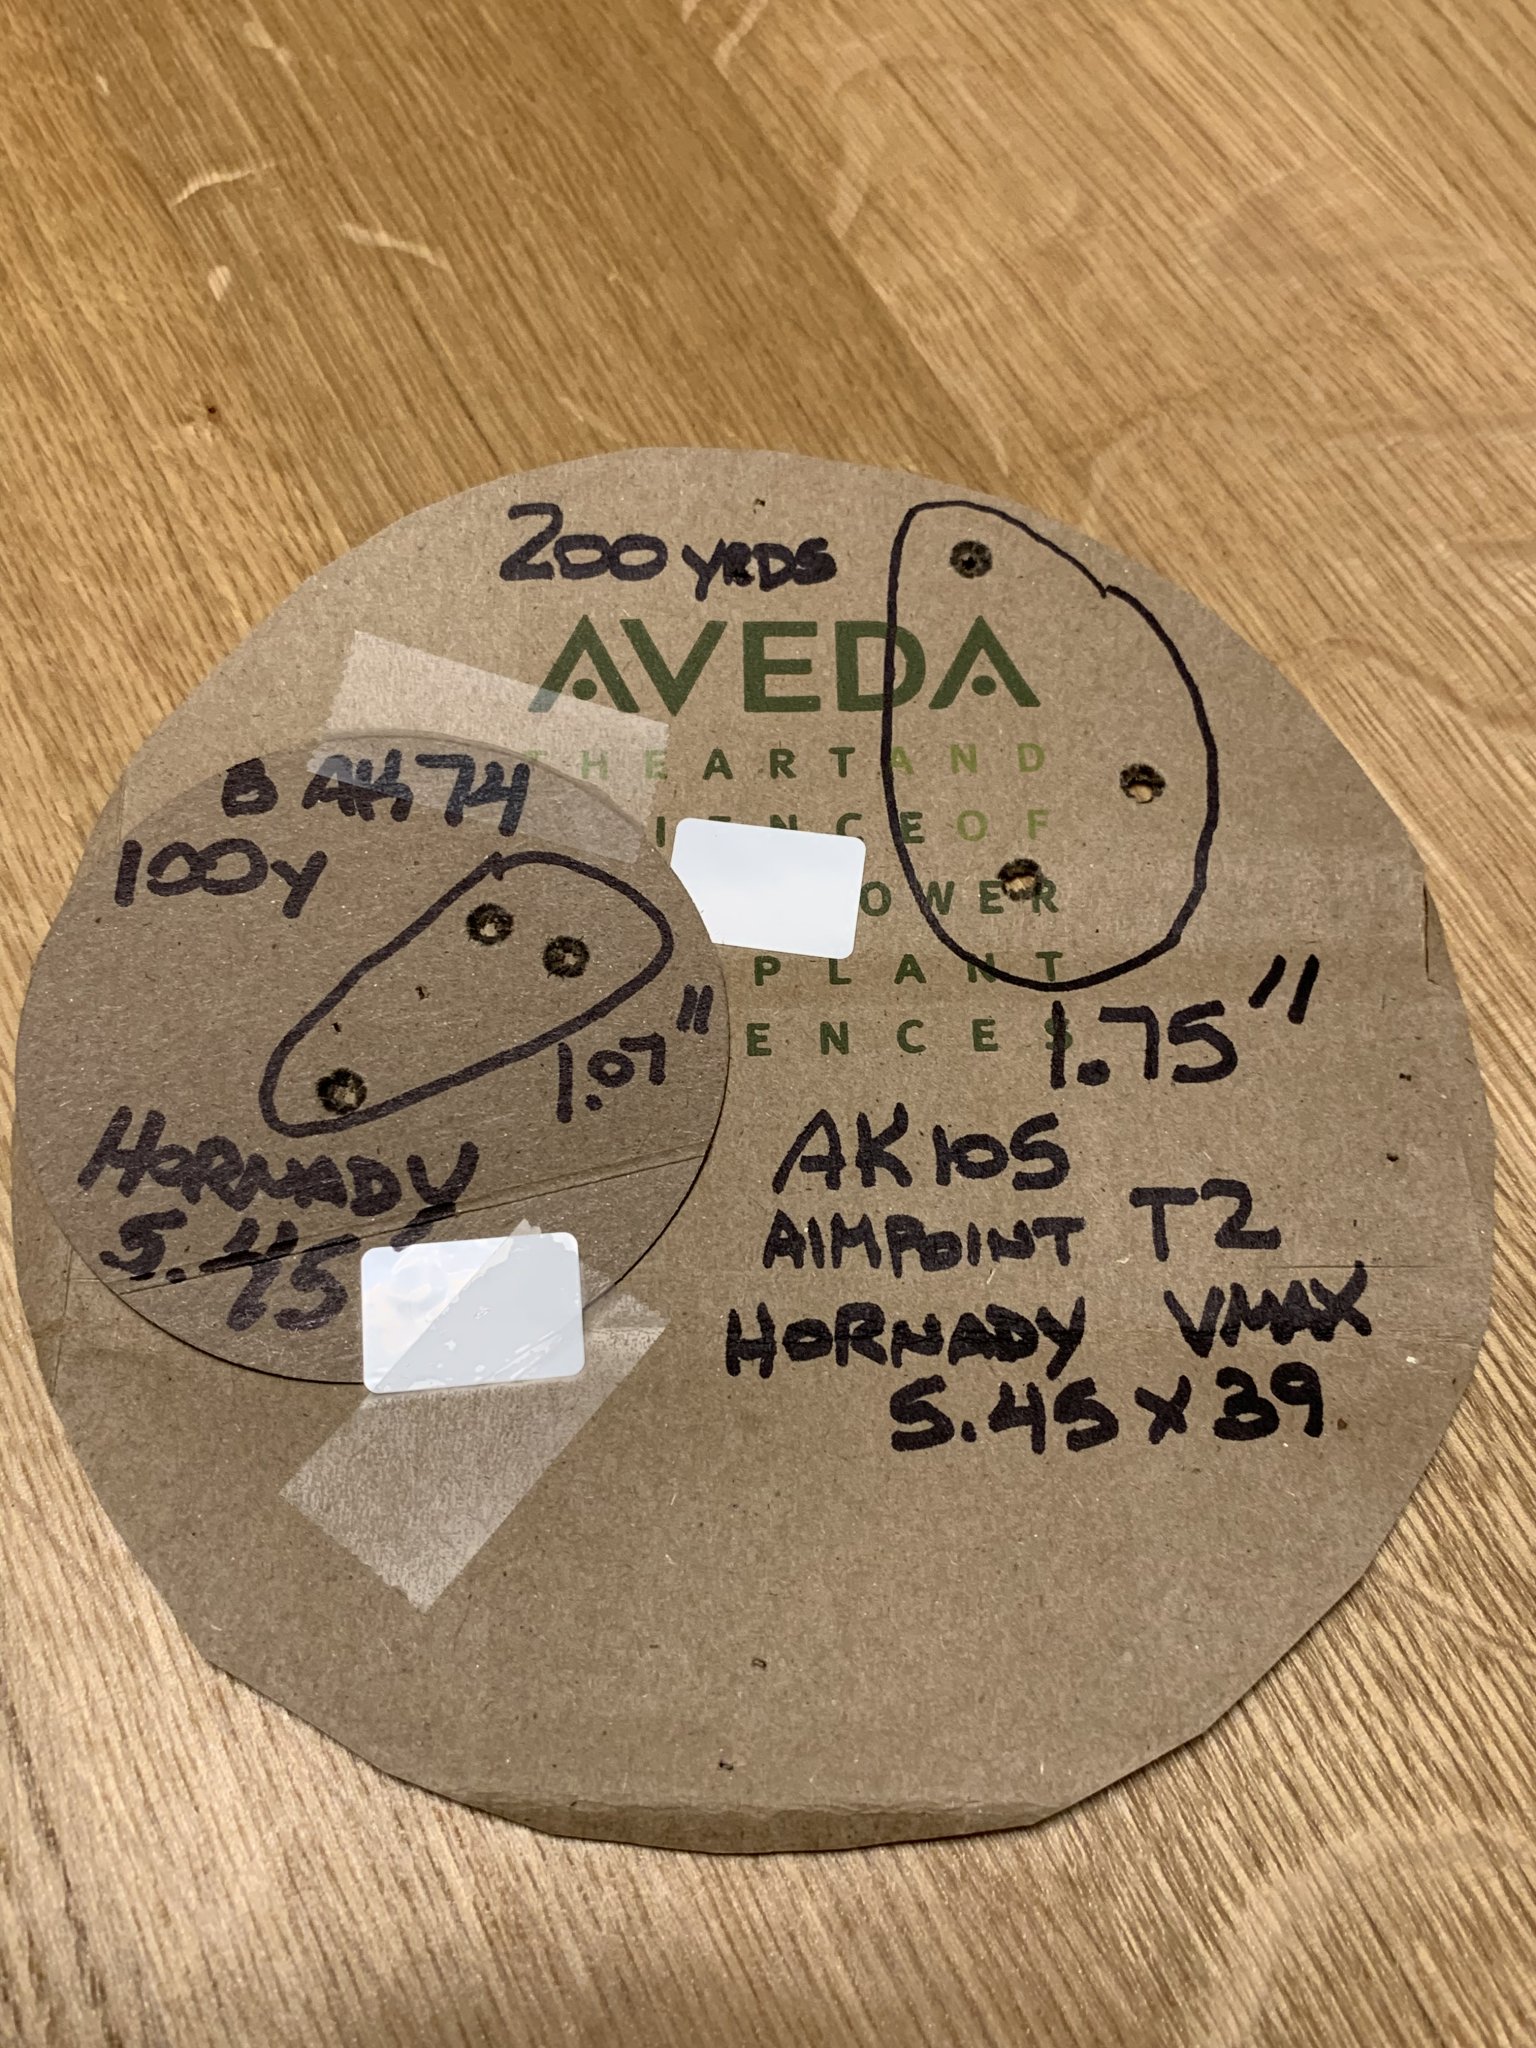 200 YRDS
AVEDA
THE ART AND
OF
PLANT
1.75"
AK105
AIMPOINT T2
HORNADY VMAX
5.45 x 39
AK74
100y
1.07"
HORNADY
5.45